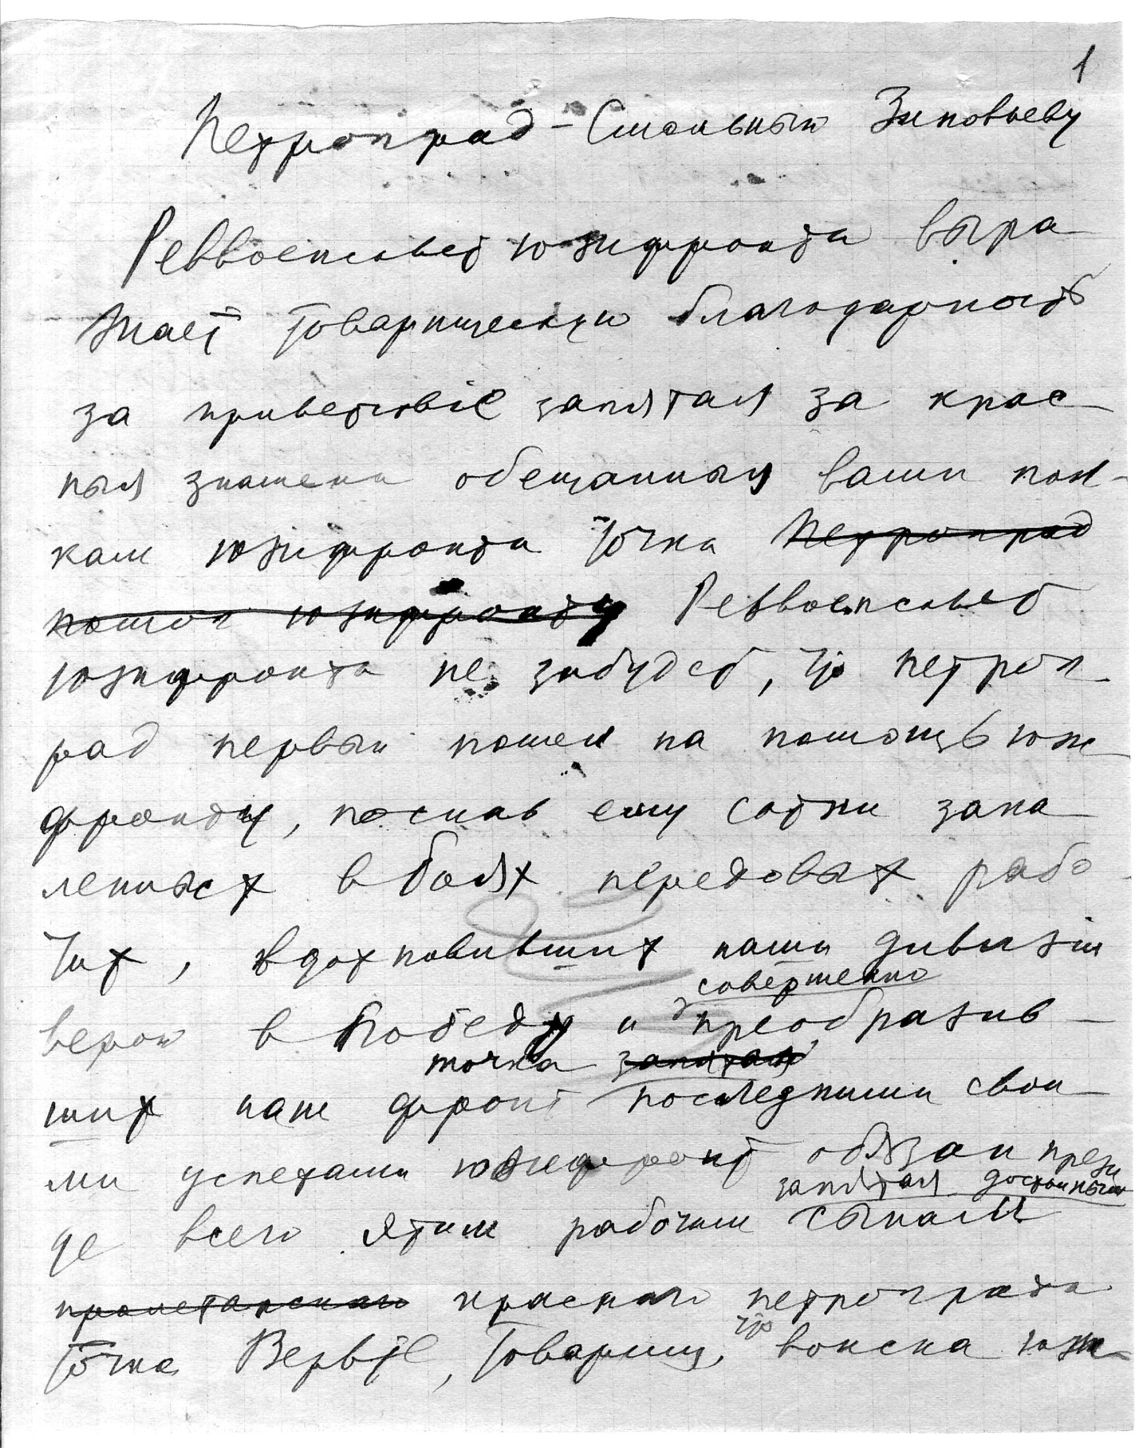 1
Петроград – Смольный Зиновьеву
Реввоенсовет южфронта выра
жает товарищескую благодарность
за приветствіе запятая за крас
ныя знамена обещанныя вами пол-
кам южфронта точка Петроград
пошол южфронту Реввоенсовет
южфронта не забудет, что петрог
рад первый пошел на помощь юж
фронту, послав ему сотни зака
ленных в боях передовых рабо
чих, вдохновивших наши дивизіи
верой в победу и совершенно преобразив
точка запятая
ших наш фронт последними свои
ми успехами южфронт обязан преж
запятая достойным
де всего этим рабочим сынам
пролетарского красного петрограда
точка Верьте, товарищ, что войска юж